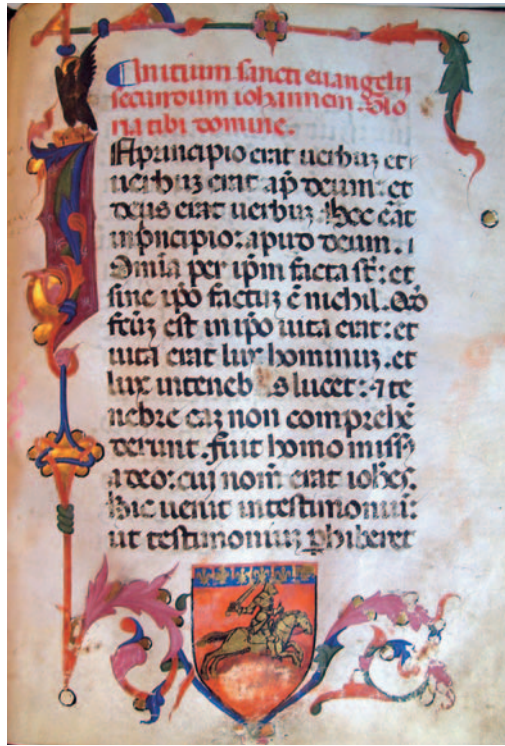 Initium sancti euangelii
secundum iohannem. Glo
ria tibi domine.
In principio erat uerbuz et
uerbuz erat ap̄ deum: et
deus erat uerbuz. Hoc eāt
in p̄ncipio: apud deum.
Omīa per ip̄m facta st̄: et
sine ip̄o factuz ē nichil. Qd̄
fc̄uz est in ip̄o uita erat: et
uita erat lux hominuz. et
lux in teneb s lucet: ⁊ te
nebre eaz non comprehē
derunt. fuit homo miss9
a deo: cui nom̄ erat ioh̄es.
hic uenit in testimoniuz:
ut testimoniuz ꝑhiberet